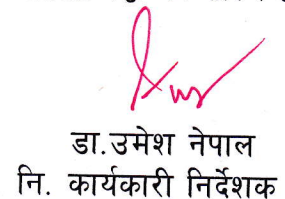 डा.उमेश नेपाल
नि. कार्यकारी निर्देशक